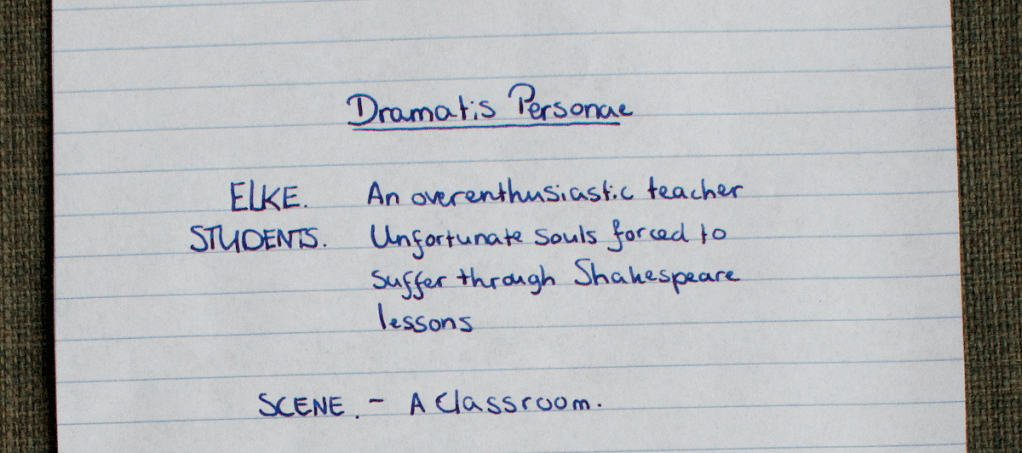 Dramatis Personae
ELKE. An overenthusiastic teacher
STUDENTS. Unfortunate souls forced to
suffer through Shakespeare
lessons
SCENE. - A Classroom.